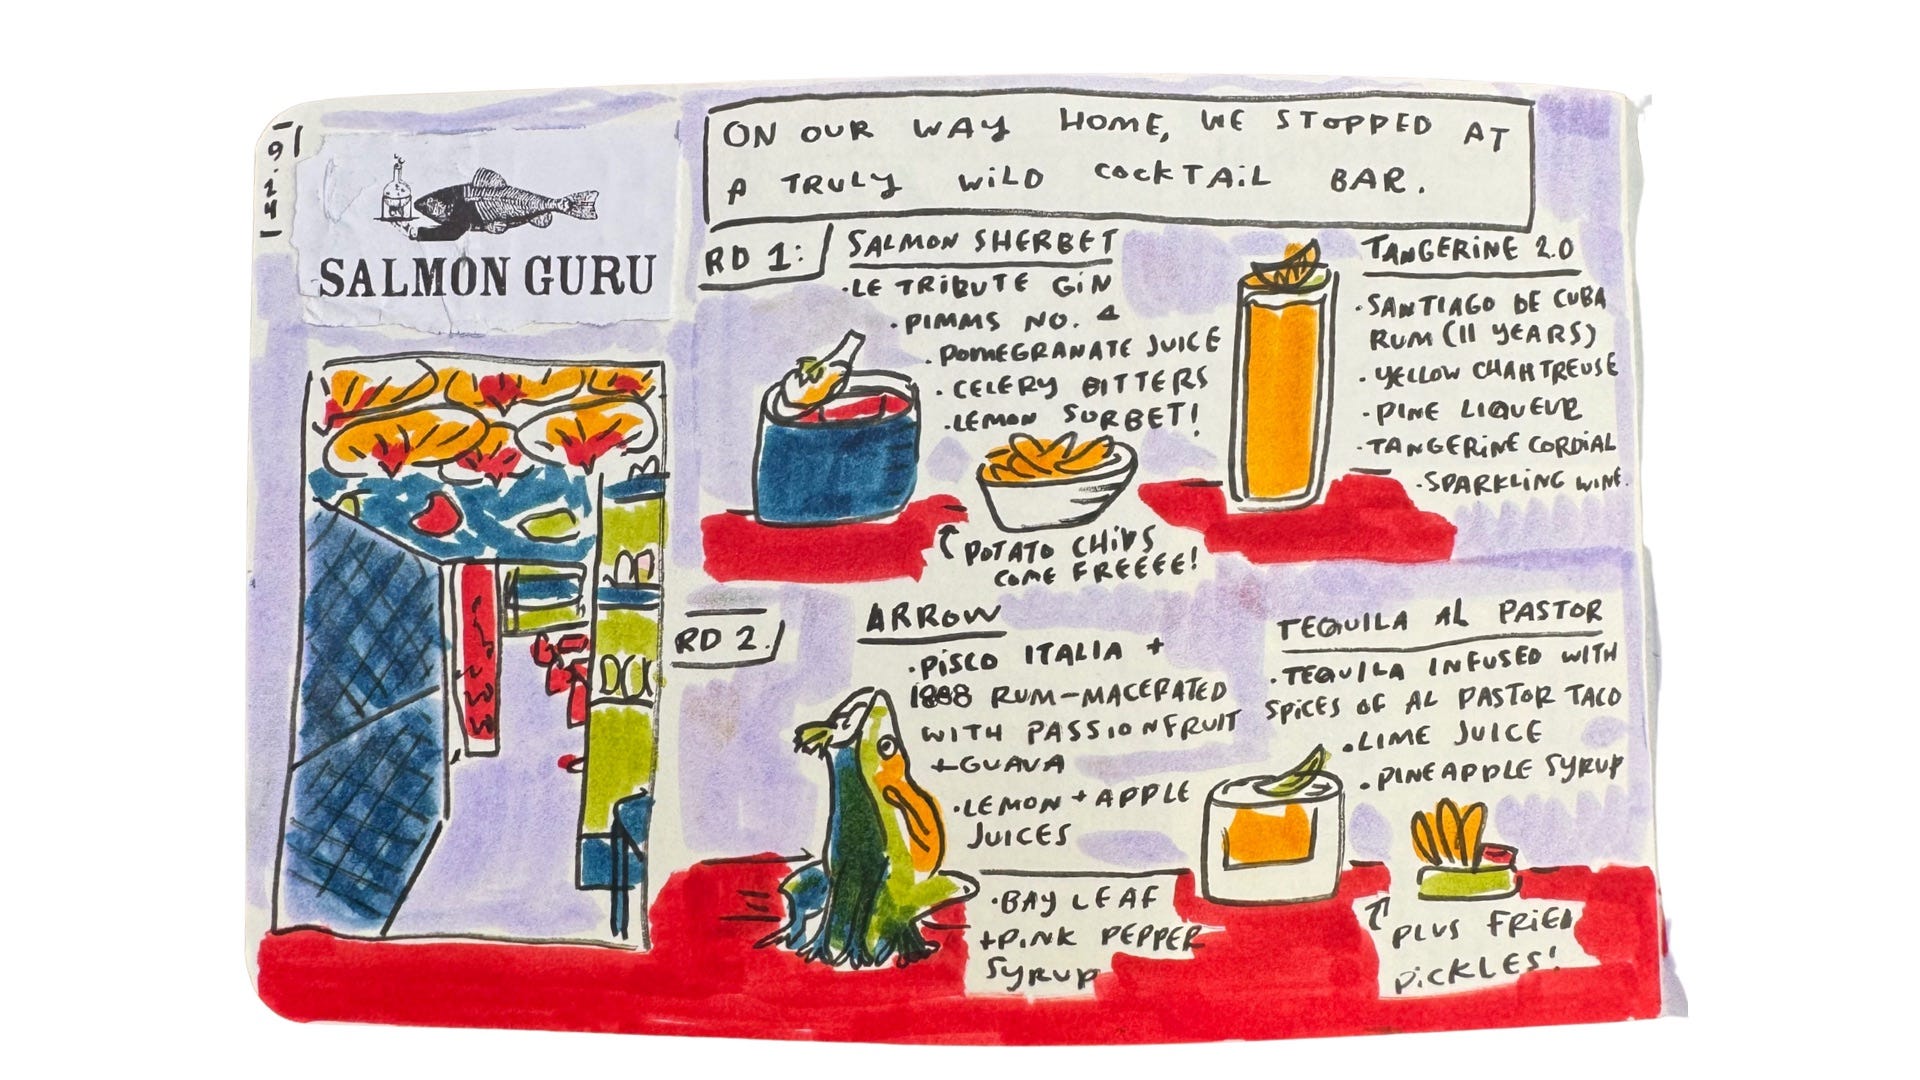 9.2.24
SALMON GURU
ON OUR WAY HOME, WE STOPPED AT
A TRULY WILD COCKTAIL BAR.
RD 1:
SALMON SHERBET
·LE TRIBUTE GIN
·PIMMS NO. 4
·POMEGRANATE JUICE
·CELERY BITTERS
·LEMON SORBET!
POTATO CHIPS
COME FREEEE!
TANGERINE 2.0
·SANTIAGO DE CUBA
RUM (11 YEARS)
·YELLOW CHARTREUSE
·PINE LIQUEUR
·TANGERINE CORDIAL
·SPARKLING WINE.
RD 2.
ARROW
·PISCO ITALIA +
1888 RUM-MACERATED
WITH PASSIONFRUIT
+GUAVA
·LEMON + APPLE
JUICES
·BAY LEAF
+PINK PEPPER
SYRUP
TEQUILA AL PASTOR
·TEQUILA INFUSED WITH
SPICES OF AL PASTOR TACO
·LIME JUICE
·PINEAPPLE SYRUP
PLUS FRIED
PICKLES!